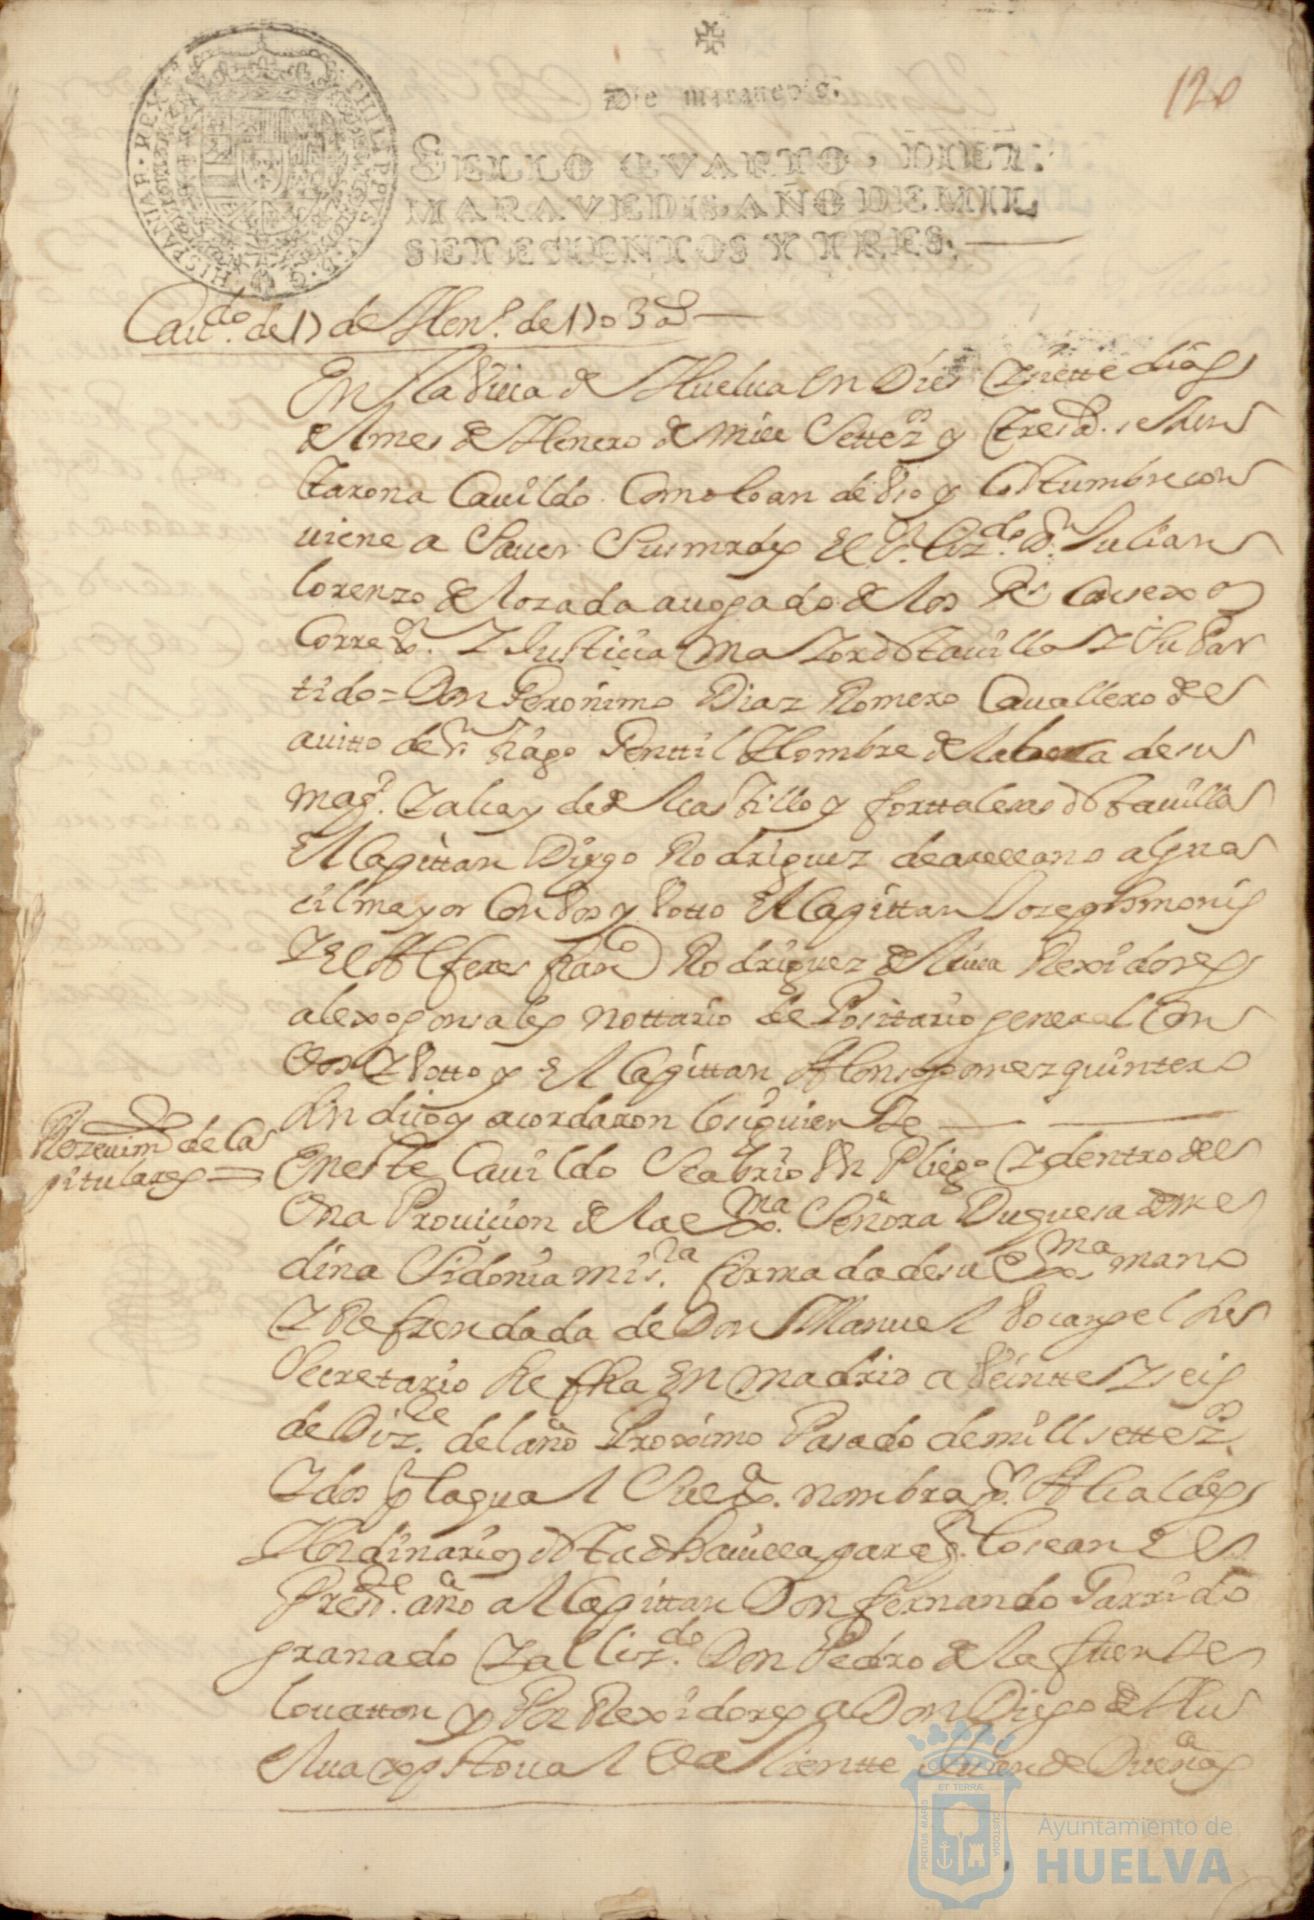 120
Diez maravedis.
SELLO QVARTO, DIEZ
MARAVEDIS, AÑO DE MIL
SETECIENTOS Y TRES.
HISPANIAR. REX
PHILIPPVS V D. G.
Cauᵈᵒ. de 17 de Henᵒ. de 1703 aˢ
En la Villa de Huelua en Dies y siette dias
del mes de Henero de mill Settezᵒˢ y tres aˢ. se Jun
taron a Cauildo Como lo an de Vso y Costumbre con
viene a Sauer Sus mrds El Sʳ. Lizᵈᵒ. Dⁿ. Julian
lorenzo de lozada auogado de los Rˢ Consexos
Correxʳ. Y Justicia Mayor dsta uilla Y Su Par
tido = Don Geronimo Diaz Romero Cauallero del
auitto de Sⁿ tiago Genttil Hombre de la boca de su
magᵈ. Y alcayde del Castillo y forttalesas dsta uilla
El Capittan Diego Rodriguez de arellano algua
cil mayor Con Vos y Votto El Capittan Joseph monis
Y El Alferes franᶜᵒ Rodriguez de Riua Rexidores
alexo gonsales nottario de Positario general Con
Vos Y Votto y El Capittan Alonso gomez quintero
Sindico y acordaron lo siguiente
Rezeuimᵗᵒ de Ca
pitulares =
En este Cauildo Se abrio Vn Pliego Y dentro del
Vna Prouicion de la exᵐᵃ. Señora Duquesa de me
dina Sidonia mi sʳᵃ firmada de su exᵐᵃ mano
Y Refrendada de Don Manuel Bocangel Su
Secretario Su fha En Madrid a Veintte Y seis
de Dizᵉ. del año Proximo Pasado de mill settezᵒˢ.
Y dos Por la qual Su exᵃ. nombra pʳ. Alcaldes
Hordinarios dsta dha uilla para q̃. lo sean Este
Presᵗᵉ. año al Capittan Don fernando Garrido
granado Y al lizᵈᵒ. Don Pedro de la fuente
louatton y Por Rexidores a Don Diego de
Xpstoual Valientte Dueñas
PORTUS MARIS
ET TERRÆ
CUSTODIA
Ayuntamiento de
HUELVA